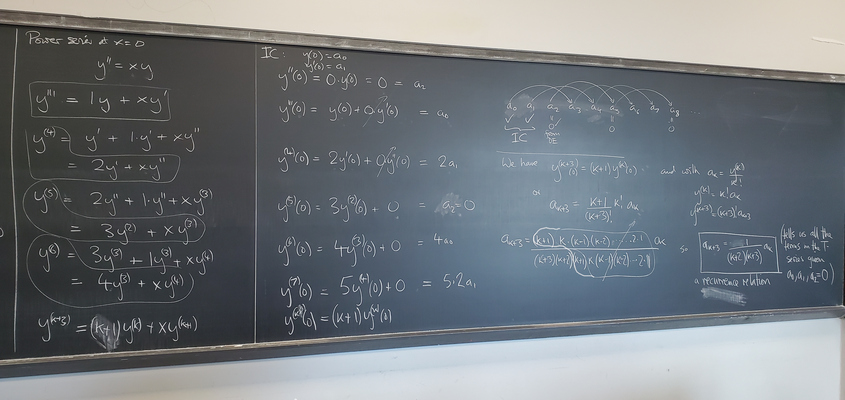 Power series at x=0
y'' = xy
y''' = 1y + xy'
y⁽⁴⁾ = y' + 1·y' + xy''
= 2y' + xy''
y⁽⁵⁾ = 2y'' + 1·y'' + xy⁽³⁾
= 3y⁽²⁾ + xy⁽³⁾
y⁽⁶⁾ = 3y⁽³⁾ + 1y⁽³⁾ + xy⁽⁴⁾
= 4y⁽³⁾ + xy⁽⁴⁾
y⁽ᵏ⁺³⁾ = (k+1)y⁽ᵏ⁾ + xy⁽ᵏ⁺¹⁾
IC: y(0) = a₀
y'(0) = a₁
y''(0) = 0·y(0) = 0 = a₂
y'''(0) = y(0) + 0·y'(0) = a₀
y⁽⁴⁾(0) = 2y'(0) + 0y''(0) = 2a₁
y⁽⁵⁾(0) = 3y⁽²⁾(0) + 0 = a₂ = 0
y⁽⁶⁾(0) = 4y⁽³⁾(0) + 0 = 4a₀
y⁽⁷⁾(0) = 5y⁽⁴⁾(0) + 0 = 5·2a₁
y⁽ᵏ⁺³⁾(0) = (k+1)y⁽ᵏ⁾(0)
a₀ a₁ a₂ a₃ a₄ a₅ a₆ a₇ a₈
IC
0 0 0
from
DE
We have y⁽ᵏ⁺³⁾(0) = (k+1)y⁽ᵏ⁾(0) and with aₖ = y⁽ᵏ⁾/k!
y⁽ᵏ⁾ = k!aₖ
y⁽ᵏ⁺³⁾ = (k+3)!aₖ₊₃
or aₖ₊₃ = (k+1)/(k+3)! k! aₖ
aₖ₊₃ = (k+1)·k·(k-1)(k-2)···2·1 / (k+3)(k+2)(k+1)k(k-1)(k-2)···2·1 aₖ so aₖ₊₃ = 1/((k+2)(k+3)) aₖ
a recurrence relation
(tells us all the
terms in the T-
series given
a₀, a₁, a₂=0)